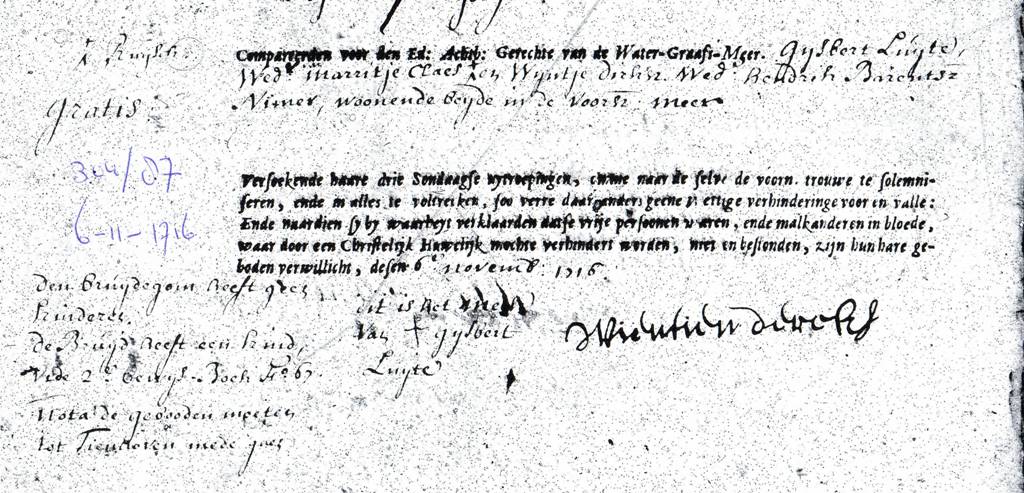 Compareerden voor den Ed: Achtb: Gerechte van de Water-Graafs-Meer. Gysbert Luyte,
Wed.r Marritje Claes en Wyntje Dirksz. Wed: Hendrik Barentsz
Nimer, woonende beyde in de voorsz: meer
Gratis.
344/87
6-11-1716
Versoekende haare drie Sondaagse uytroepingen, omme naar de selve de voorn. trouwe te solemni-
seren, ende in alles te voltrecken, soo verre daar anders geene wettige verhinderinge voor en valle:
Ende naardien sy by waarheyt verklaarden datse vrije persoonen waren, ende malkanderen in bloede,
waar door een Christelijk Huwelijk mochte verhindert worden, niet en bestonden, zijn hun hare ge-
boden verwillicht, desen 6e novemb: 1716.
den Bruydegom heeft geen
kinderen.
de Bruyd heeft een kind,
Vide 2e bewys-Boek Fo. 67
Nota de geboden moeten
tot Tienhoven mede gaen
dit is het merk
van + Gysbert
Luyte
Wientien dercks